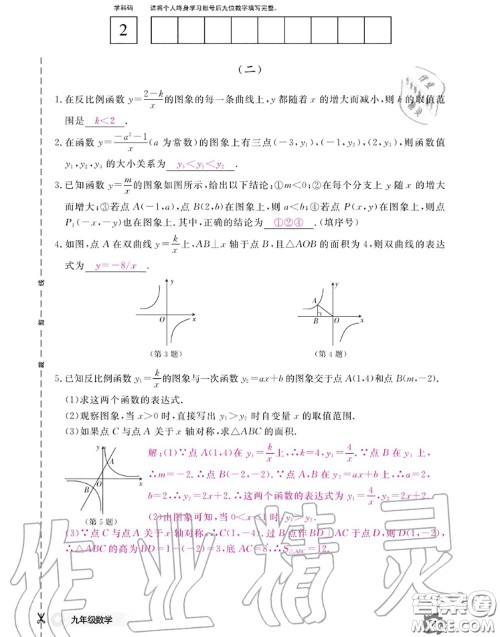 学科码 请将个人终身学习账号后九位数字填写完整.
2
(二)
1.在反比例函数 y=(2-k)/x 的图象的每一条曲线上,y 都随着 x 的增大而减小,则 k 的取值范
围是 k<2 .
2.在函数 y=(-a²-1)/x (a 为常数)的图象上有三点(-3,y₁),(-1,y₂),(2,y₃),则函数值
y₁,y₂,y₃ 的大小关系为 y₃<y₁<y₂ .
3.已知函数 y=m/x 的图象如图所示,给出以下结论:①m<0;②在每个分支上 y 随 x 的增大
而增大;③若点 A(-1,a),点 B(2,b)在图象上,则 a<b;④若点 P(x,y)在图象上,则点
P₁(-x,-y)也在图象上.其中,正确的结论为 ①②④ .(填序号)
4.如图,点 A 在双曲线 y=k/x 上,AB⊥x 轴于点 B,且△AOB 的面积为 4,则双曲线的表达
式为 y=-8/x .
y
O
x
(第 3 题)
y
A
B
O
x
(第 4 题)
5.已知反比例函数 y₁=k/x 的图象与一次函数 y₂=ax+b 的图象交于点 A(1,4)和点 B(m,-2).
(1)求这两个函数的表达式.
(2)观察图象,当 x>0 时,直接写出 y₁>y₂ 时自变量 x 的取值范围.
(3)如果点 C 与点 A 关于 x 轴对称,求△ABC 的面积.
(第 5 题)
解:(1)∵点 A(1,4)在 y₁=k/x 上,∴k=4,y₁=4/x.∵点 B(m,-2)在 y₁=4/x 上,
∴m=-2.∴点 B(-2,-2).∵点 A,B 在 y₂=ax+b 上,∴a=2,
b=2,∴y₂=2x+2.∴这两个函数的表达式为 y₁=4/x,y₂=2x+2.
(2)由图象可知,当 0<x<1 时,y₁>y₂.
(3)∵点 C 与点 A 关于 x 轴对称,∴C(1,-4).过点 B 作 BD⊥AC 于点 D,则 D(1,-2),
∴△ABC 的高为 BD=1-(-2)=3,底 AC=8,∴S△ABC=12.
九年级数学
作业精灵